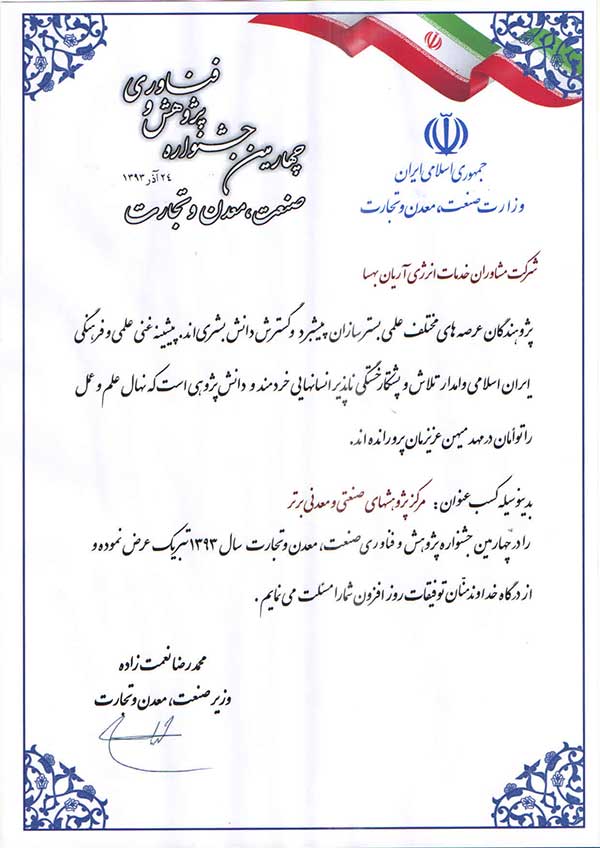 جمهوری اسلامی ایران
وزارت صنعت، معدن و تجارت
چهارمین جشنواره پژوهش و فناوری
صنعت، معدن و تجارت
۲۴ آذر ۱۳۹۳
شرکت مشاوران خدمات انرژی آریان بهسا
پژوهندگان عرصه های مختلف علمی بسترسازان پیشبرد و گسترش دانش بشری اند. پیشینه غنی علمی و فرهنگی
ایران اسلامی وامدار تلاش و پشتکار خستگی ناپذیر انسانهایی خردمند و دانش پژوهی است که نهال علم و عمل
را توأمان در مهد میهن عزیزمان پرورانده اند.
بدینوسیله کسب عنوان: مرکز پژوهشهای صنعتی و معدنی برتر
را در چهارمین جشنواره پژوهش و فناوری صنعت، معدن و تجارت سال ۱۳۹۳ تبریک عرض نموده و
از درگاه خداوند منّان توفیقات روز افزون شما را مسئلت می نمایم.
محمدرضا نعمت زاده
وزیر صنعت، معدن و تجارت